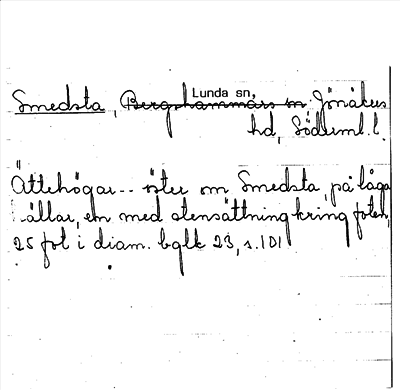 Lunda sn,
Smedsta, Bergshammars sn Jönåkers
hd, Söderml. l.
Ättehögar -- öster om Smedsta, på låga
ällar, en med stensättning kring foten,
25 fot i diam. bglk 23, s. 101